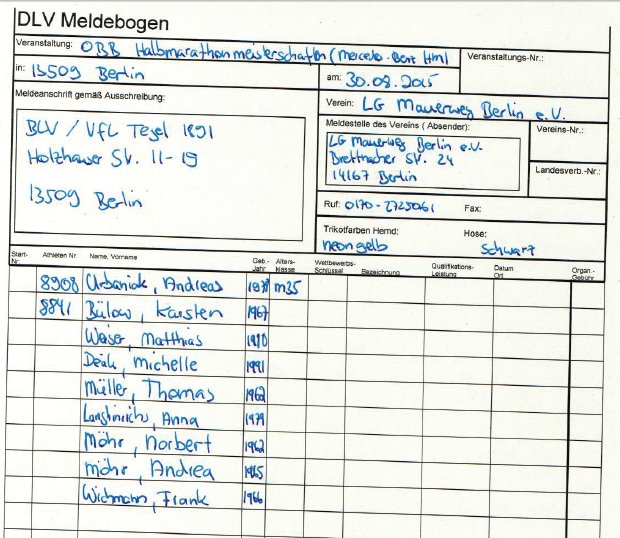 DLV Meldebogen
Veranstaltung: OBB Halbmarathonmeisterschaften (mercedo-Benz HM)
Veranstaltungs-Nr.:
in: 13509 Berlin
am: 30.08.2015
Meldeanschrift gemäß Ausschreibung:
Verein: LG Mauerweg Berlin e.V.
BLV / VfL Tegel 1891
Holzhauser Str. 11-19
13509 Berlin
Meldestelle des Vereins ( Absender):
LG Mauerweg Berlin e.V.
Str. 24
14167 Berlin
Vereins-Nr.:
Landesverb.-Nr.:
Ruf: 0170-2725061 Fax:
Trikotfarben Hemd: Hose:
neongelb Schwarz
Start-Nr. Athleten Nr. Name, Vorname Geb.-Jahr Alters-klasse Wettbewerbs-Schlüssel Bezeichnung Qualifikations-Leistung Datum Ort Organ.-Gebühr
8908 Urbaniak, Andreas 1978 m35
8841 Bülow, Karsten 1967
Weiser, Matthias 1970
Michelle 1991
Müller, Thomas 1962
Anna 1979
Möhr, Norbert 1962
Möhr, Andrea 1965
Wichmann, Frank 1966